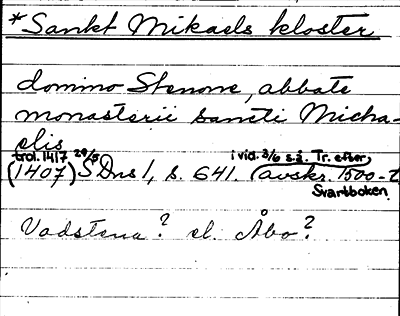 *Sankt Mikaels kloster
domino Stenone, abbate
monasterii sancti Micha-
elis
trol. 1417 29/5 i vid. 3/6 s.å. Tr. efter
(1407) SDns 1, s. 641. (avskr. 1500-t
Svartboken
Vadstena? el. Åbo?